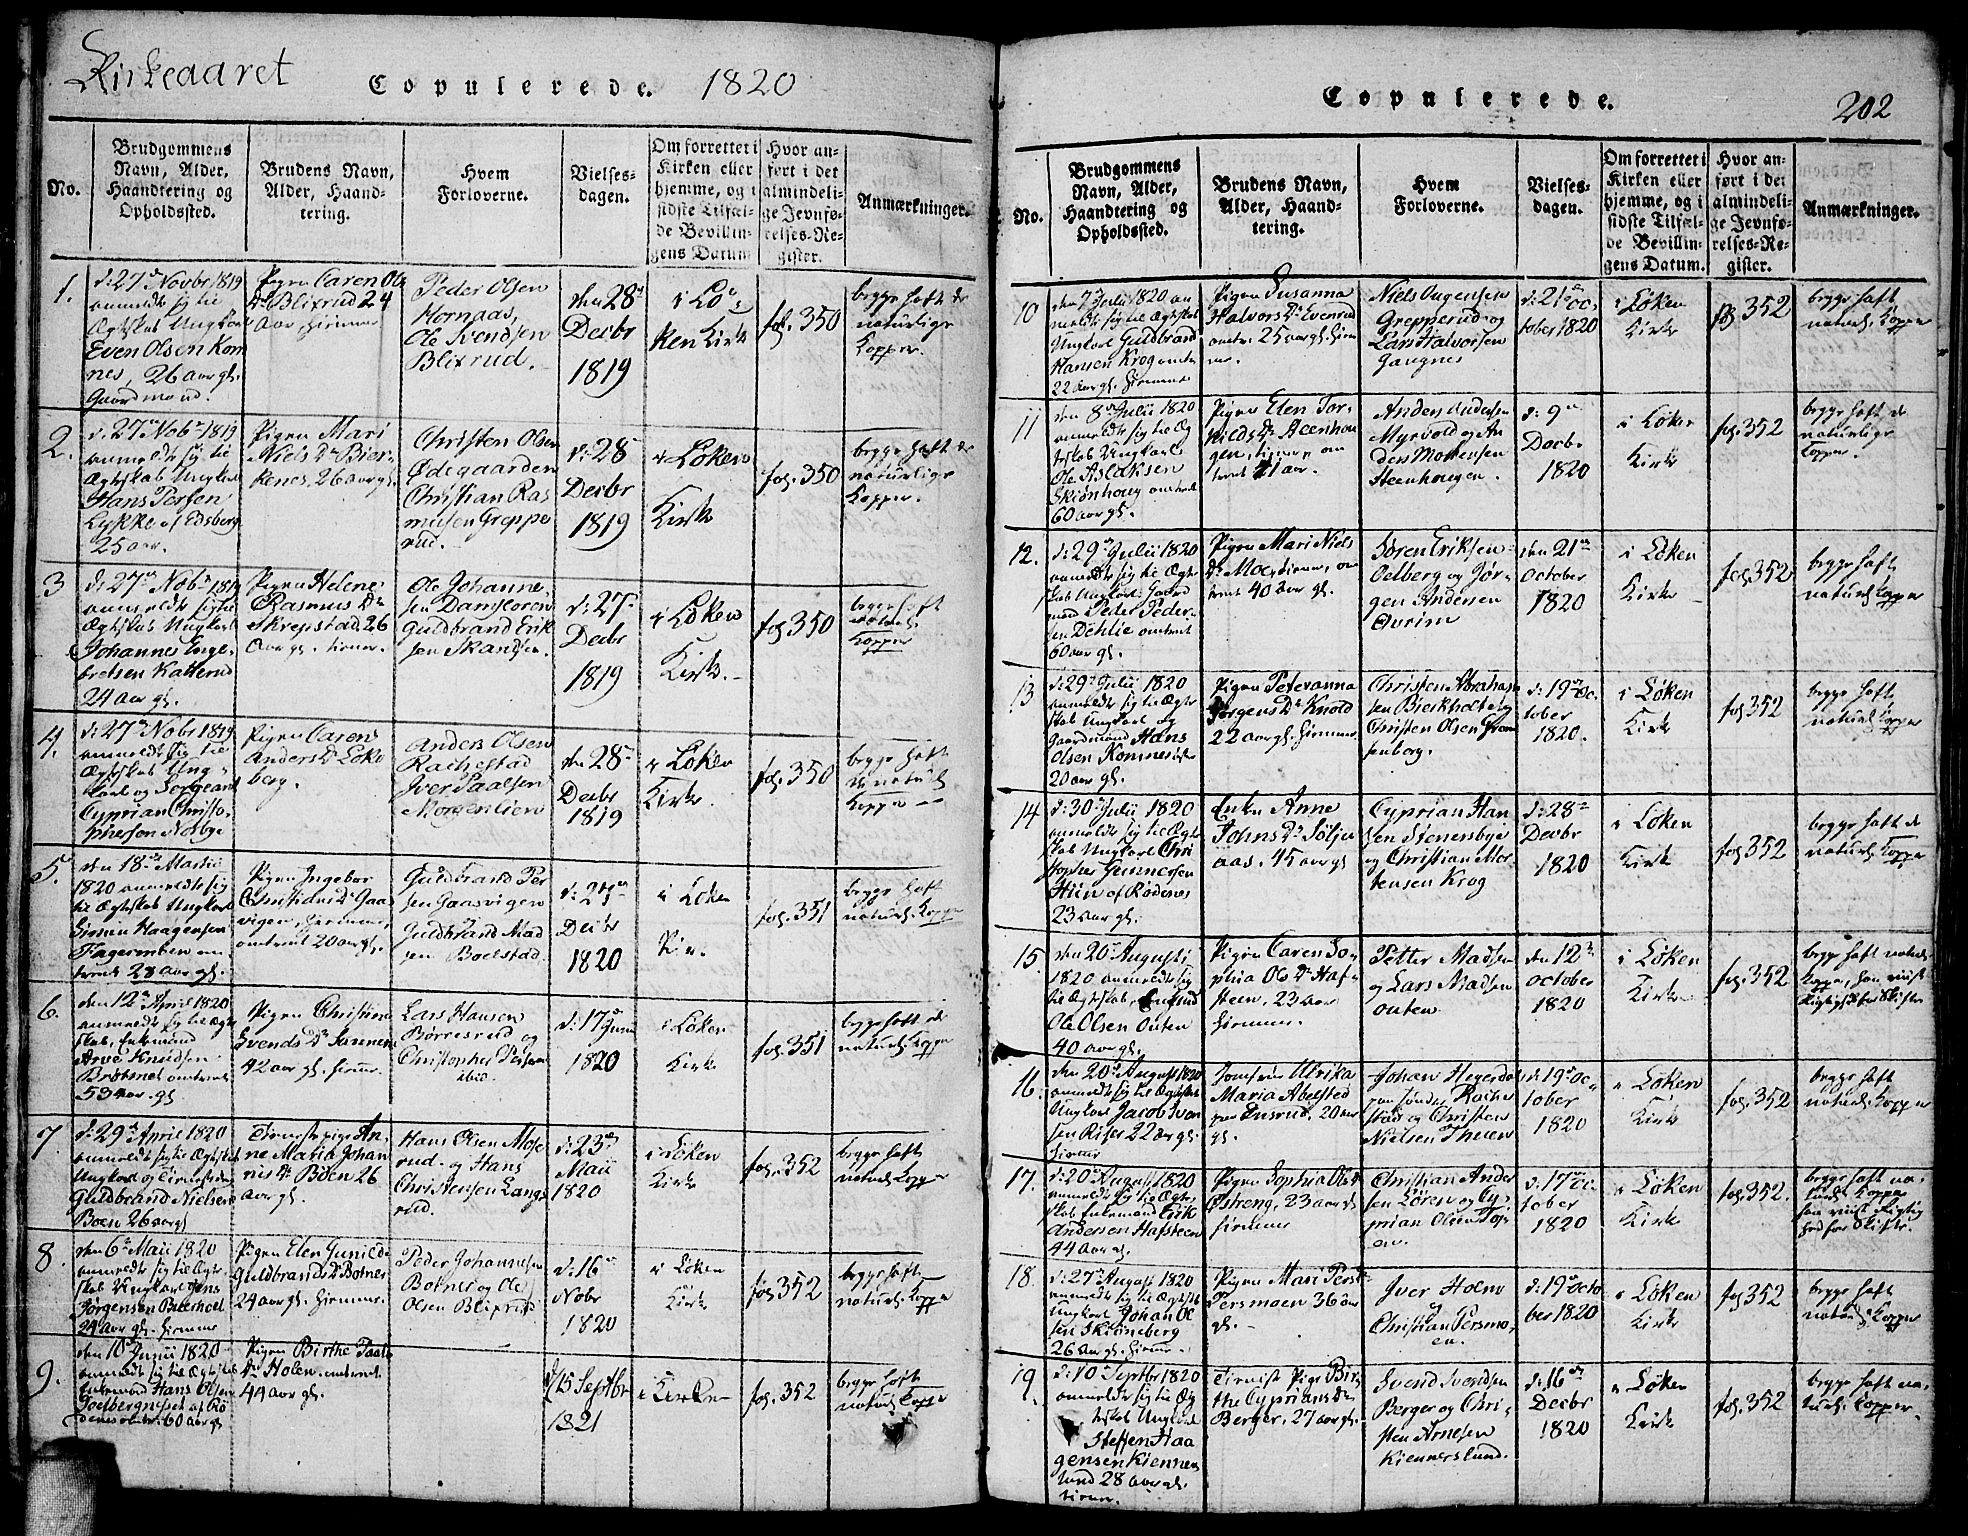 Kirkeaaret
Copulerede. 1820
No.
Brudgommens
Navn, Alder,
Haandtering og
Opholdssted.
Brudens Navn,
Alder, Haand-
tering.
Hvem
Forloverne.
Vielses-
dagen.
Om forrettet i
Kirken eller
hjemme, og i
sidste Tilfæl-
de Bevillin-
gens Datum
Hvor an-
ført i det
almindeli-
ge Jevnfø-
relses-Re-
gister.
Anmærkninger.
1.
d: 27de Novbr 1819
anmeldt sig til
Ægteskab Ungkarl
Even Olsen Kom
nes, 26 aar gl.
Gaardmand.
Pigen Caren Ols
Dr Blixrud 24
Aar
Peder Olsen
Hornaas,
Ole Svendsen
Blixrud.
den 28de
Decbr
1819
i Lø-
ken Kirke
fol. 350
begge haft de
naturlige
Kopper.
2.
d. 27de Novbr 1819
anmeldt sig til
Ægteskab Ungkarl
Hans Persen
Lykke af Edsberg
25 aar.
Pigen Mari
Niels Dr Bier-
kenes, 26 aar gl.
Christen Olsen
Ødegaarden
Christian Ras
musen Greppe
rud.
d: 28
Decbr
1819
i Løken
Kirke
fol. 350
begge haft de
naturlige
Kopper.
3
d: 27de Novbr 1819
anmeldt sig til
Ægteskab Ungkarl
Johannes Enge-
bretsen Katterud
24 aar gl.
Pigen Helene
Rasmus Dr
Skrepstad 26
Aar gl.
Ole Johanne-
sen Damholen
Guldbrand Erik
sen Skandsen.
d: 27
Decbr
1819
i Løken
Kirke.
fol. 350
begge haft
naturl.
Kopper
4.
d: 27de Novbr 1819
anmeldt sig til
Ægteskab Ung-
karl og Sergeant
Cyprian Christo-
phersen Nosbye
Pigen Caren
Anders Dr Løke
berg.
Anders Olsen
Rackestad
Iver Paalsen
Morgenlien
den 28
Decbr
1819
i Løken
Kirke.
fol. 350
begge haft
naturl.
Kopper
5.
den 18de Martii
1820 anmeldt sig
til Ægteskab Ungkarl
Simen Haagensen
Fagermoen om
trent 28 aar gl.
Pigen Ingebor
Christians Dr Gaas
vigen,
omtrent 20 aar gl.
Guldbrand Per
sen Gaasvigen
Guldbrand Mad
sen Boelstad.
Decbr
1820
i Løken
fol. 351
begge haft
naturl. Kopper
6.
den 12te April 1820
anmeldt sig til Ægte
skab, Enkemand
Arve Knudsen
Brøtsnet omtrent
53 aar gl
Pigen Christine
Svends Dr
42 aar gl.
Lars Hansen
Børresrud og
Christopher Persen
ibid.
d: 17de Junii
1820
i Løken
Kirke
fol. 351
begge haft de
naturl. Kopper
7.
d: 29de April 1820
anmeldt sig til Ægteskab
Ungkarl og
Guldbrand Nielsen
Boen 26 aar gl
An-
ne Maria Johan
nis Dr Boen 26
aar gl.
Hans Olsen Mose
rud og Hans
Christensen Langs
rud.
d: 23de
Maii
1820
i Løken
Kirke
fol. 352
begge haft
naturl. Kopper
8.
den 6te Maii 1820
anmeldt sig til Ægte-
skab Ungkarl Jens
Jørgensen Bierholt
24 aar gl.
Pigen Elen Gunilde
Guldbrands Dr Botner
24 aar gl.
Peder Johannesen
Botner og Ole
Olsen Blixrud
d: 16de
Nobr
1820
i Løken
Kirke
fol. 352
begge haft
naturl. Kopper
9.
den 10de Junii 1820
anmeldt sig til Ægteskab
Enkemand Hans Olsen
af Rø
denes omtr. 60 aar gl
Pigen Birthe Paals
Dr Holen omtrent
44 aar gl.
d/15 Septbr
1821
i Kirken
fol. 352
begge haft
naturl. Kopper
Copulerede.
202
No.
Brudgommens
Navn, Alder,
Haandtering og
Opholdssted.
Brudens Navn,
Alder, Haand-
tering.
Hvem
Forloverne.
Vielses-
dagen.
Om forrettet i
Kirken eller
hjemme, og i
sidste Tilfæl-
de Bevillin-
gens Datum.
Hvor an-
ført i det
almindeli-
ge Jevnfø-
relses-Re-
gister.
Anmærkninger.
10
den 7de Julii 1820 an
meldt sig til Ægteskab
Ungkarl Guldbrand
Hansen Krog omtr
22 aar gl.
Pigen Susanna
Halvors Dr Evenrud
omtr. 25 aar gl.
Niels Ougensen
Grepperud og
Lars Halvorsen
Gaugnes
d: 21de Oc
tober 1820
i Løken
Kirke
fol 352
begge haft
naturl. Kopper
11
den 8de Julii 1820
anmeldt sig til Æg
teskab Ungkarl
Ole Aslaksen
Skiønhoug omtrent
60 aar gl.
Pigen Elen Tor-
kilds Dr Steenhou
gen, om
trent 41 aar.
Anders Andersen
Myrvold og An
ders Mortensen
Steenhougen.
d: 9de
Decbr
1820
i Løken
Kirke
fol. 352
begge haft de
naturlige
Kopper.
12.
d: 29de Julii 1820
anmeldt sig til Ægte
skab Ungkarl Gaard
mand Peter Peder-
sen Dehlie omtrent
60 aar gl.
Pigen Mari Niels
Dr Moe, om
trent 40 aar gl.
Søren Eriksen
Oelberg og Jør-
gen Andersen
Ovrim
den 21de
October
1820
i Løken
Kirke
fol. 352
begge haft
naturl. Kopper
13
d: 29de Julii 1820
anmeldt sig til Ægte
skab Ungkarl og
Gaardmand Hans
Olsen Komnes
20 aar gl.
Pigen Petevanna
Jørgens Dr Knold
22 aar gl.
Christen Abraham
sen Bierkholt og
Christen Olsen From
senborg.
d: 19de Oc
tober
1820.
i Løken
Kirke
fol 352
begge haft
naturl. Kopper
14
d: 30te Julii 1820
anmeldt sig til Ægte
skab Ungkarl Chri
stopher Gunnersen
Huen af Rødenes
23 aar gl.
Enke Anne
Johns Dr Solju
aas, 45 aar gl
Cyprian Han
sen Steenersbye
og Christian Mor
tensen Krog
d: 28de
Decbr
1820
i Løken
Kirke
fol. 352
begge haft de
naturl. Kopper
15.
den 20de Augusti
1820 anmeldt sig
til Ægteskab, Enkemd
Ole Olsen Outen
40 aar gl.
Pigen Caren So-
phia Ols Dr Haf-
steen, 23 aar
Petter Madsen
og Lars Madsen
Outen
den 12te
October
1820
i Løken
Kirke
fol. 352
begge haft naturl
Kopper, han viist
Rigtighed for Skifte
16.
den 20de August 1820
anmeldt sig til Ægteskab
Ungkarl Jacob Iven
sen Riser 22 aar gl.
Jomfrue Ulrika
Maria Abelsted
paa Ensrud, 20 aar
gl.
Johan Hegerdal
paa søndre Racke
stad og Christen
Nielsen Theien
d: 19de Oc
tober
1820
i Løken
Kirke
fol 352
begge haft
naturl. Kopper
17.
d: 20de August 1820
anmeldt sig til Ægte
skab Enkemand Erik
Andersen Hafsteen
44 aar gl.
Pigen Sophia Ols Dr
Østreng, 23 aar gl
Christian Ander
sen Løren og Cy-
prian Olsen
d: 17de Oc
tober
1820
i Løken
Kirke
fol 352.
begge haft na-
turl. Kopper
han viist Rigtig
hed for Skifte.
18.
d: 27de August 1820
anmeldt sig til Ægteskab
Ungkarl Johan Ol
sen Skiønneberg
26 aar gl.
Pigen Mari Pers Dr
Persmoen 36 aar
gl.
Iver Holm
og
Christian Persmo-
en.
d: 19de Octo
ber 1820
i Løken
Kirke
fol 352
begge haft
naturl. Kopper
19
d: 10de Septbr 1820
anmeldt sig til Æg
teskab Ungkarl
Steffen Haa
gensen Kienner
lund 28 aar gl.
Pige Bir-
the Cyprians Dr
Berger, 27 aar gl.
Svend Svendsen
Berger og Chri-
sten Arnesen
Kiennerslund.
d: 16de
Decbr
1820
i Løken
Kirke
fol. 352
begge haft na-
turl. Kopper.